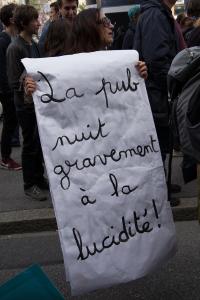 La pub
nuit
gravement
à la
lucidité!